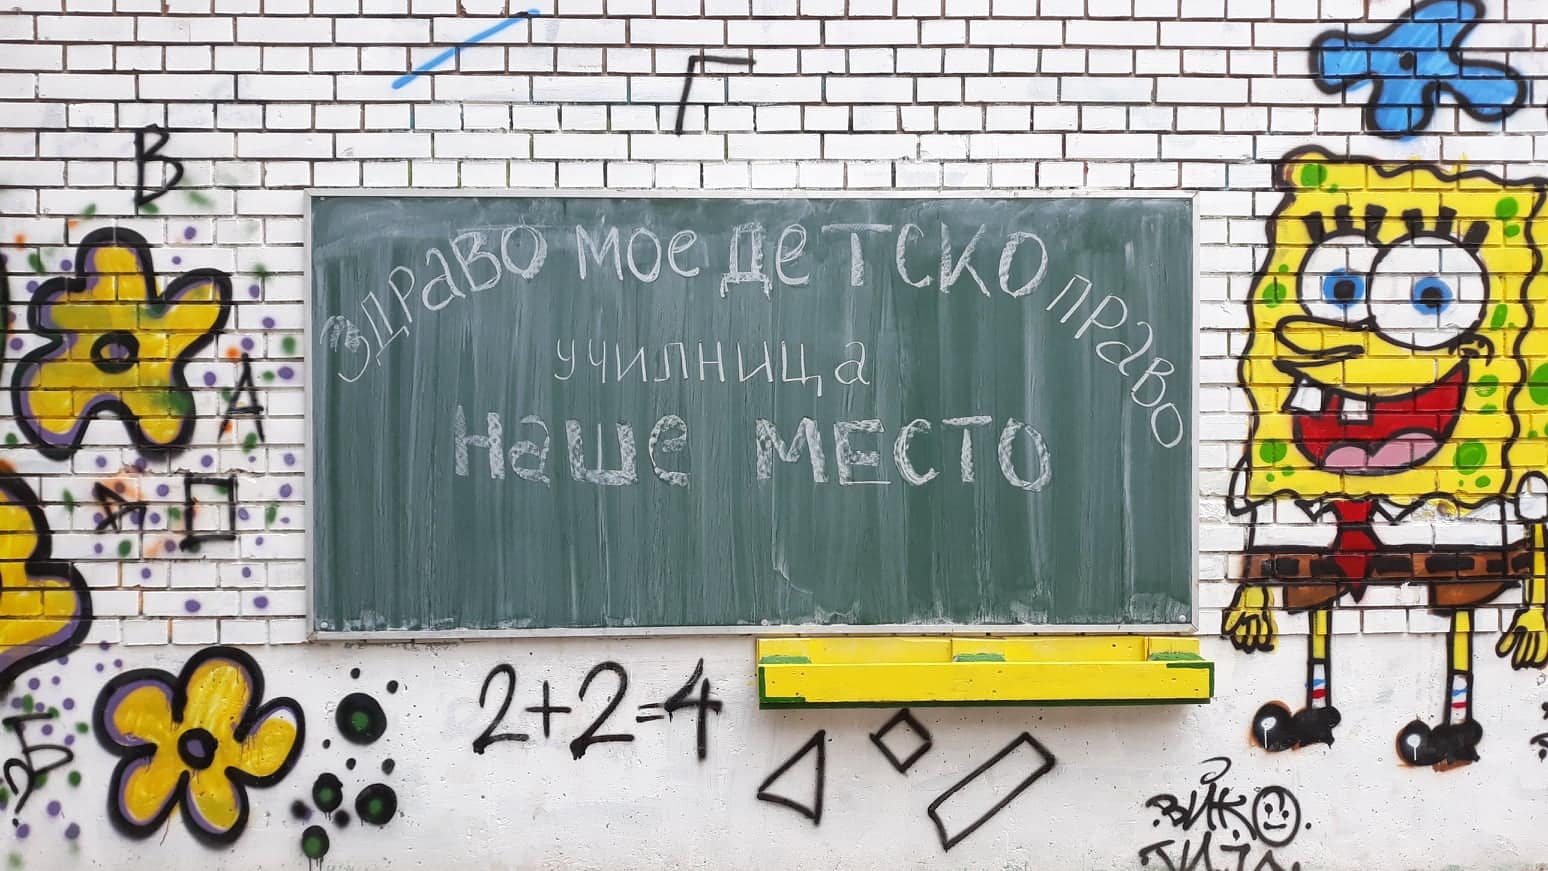 Г
В
ЗДРАВО МОЕ ДЕТСКО ПРАВО
УЧИЛНИЦА
НАШЕ МЕСТО
А
П
Б
2+2=4
ВИК